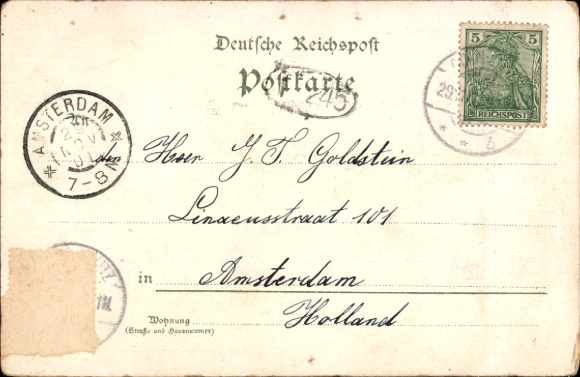 Deutsche Reichspost
Postkarte
5 5
REICHSPOST
245
29.
6
AMSTERDAM
7-8N
den Heer J. T. Goldstein
Linaeusstraat 101
in Amsterdam
Holland
Wohnung
(Straße und Hausnummer)